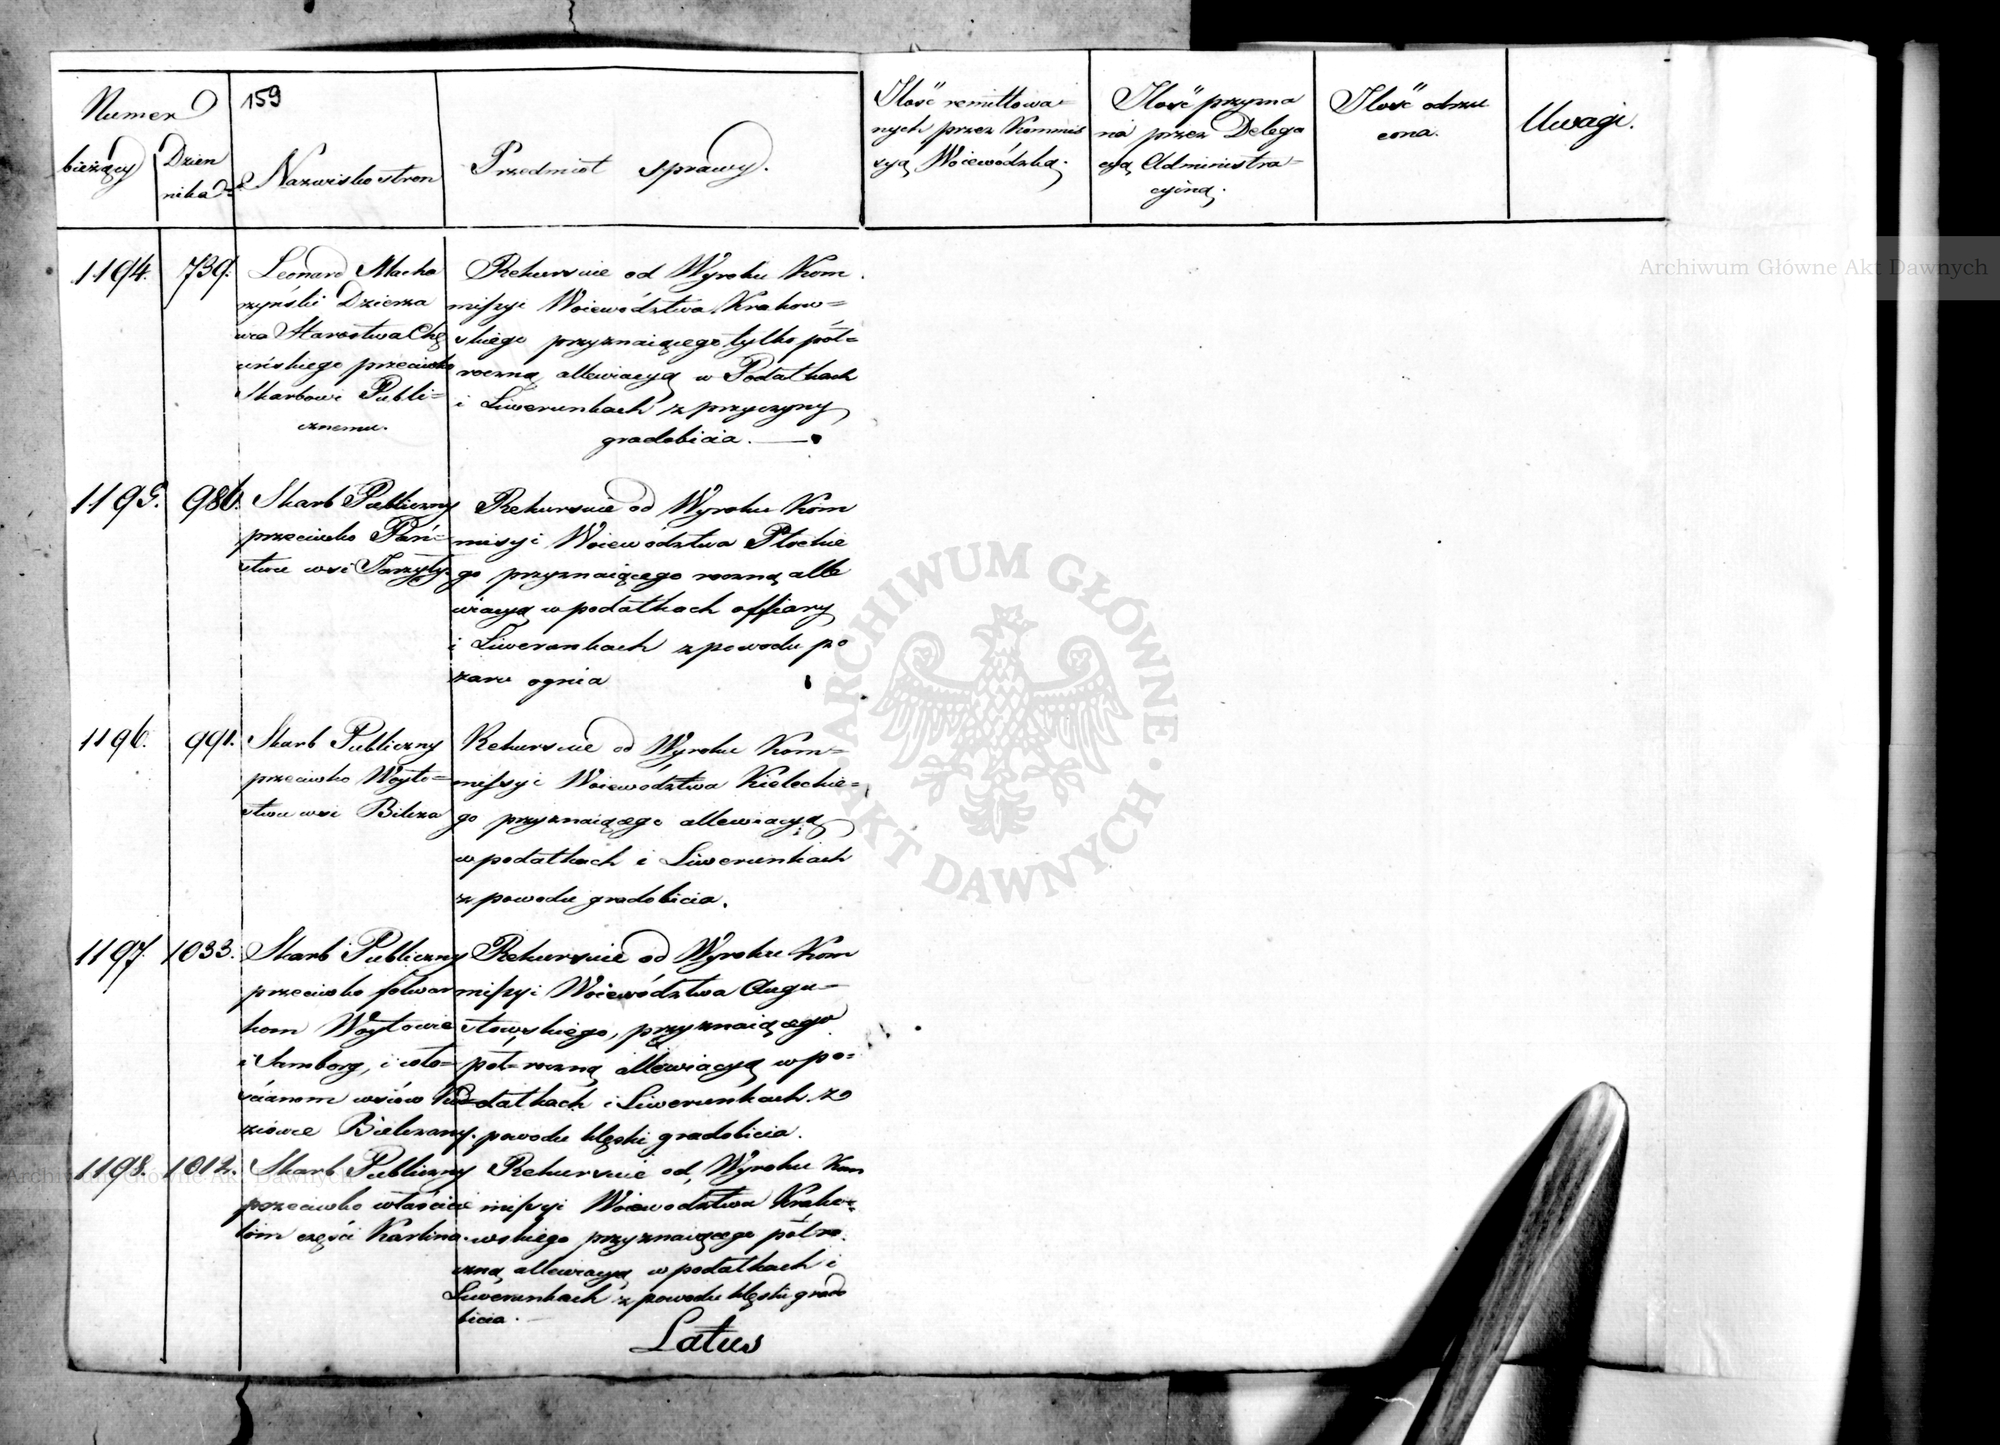 159
Numer
bieżący
Dzien
nika
Nazwisko stron
Przedmiot sprawy.
Ilość remittowa=
nych przez Kommis
syą Woiewódzką.
Ilość przyzna
na przez Delega
cyą Administra=
cyiną.
Ilość odrzu
cona.
Uwagi.
1194. 739.
Leonard Macha
rzyński Dzierza
wca Starostwa Chę
cińskiego przeciwko
Skarbowi Publi=
cznemu.
Rekursuie od Wyroku Kom
missyi Woiewództwa Krakow=
skiego przyznaiącego tylko pół=
roczną allewiacyą w Podatkach
i Liwerunkach z przyczyny
gradobicia.
1195. 986.
Skarb Publiczny
przeciwko Pań=
stwu wsi
Rekursuie od Wyroku Kom
missyi Woiewództwa Płockie
go przyznaiącego roczną alle
wiacyą w podatkach offiary
i Liwerunkach z powodu po
żaru ognia
1196. 991.
Skarb Publiczny
przeciwko Woyto=
stwu wsi Bilcza
Rekursuie od Wyroku Kom=
missyi Woiewództwa Kieleckie=
go przyznaiącego allewiacyą
w podatkach i Liwerunkach
z powodu gradobicia.
1197. 1033.
Skarb Publiczny
przeciwko folwar
kom Woytowie
i Samborg, i wło=
ścianom wsiów
Bielczany.
Rekursuie od Wyroku Kom
missyi Woiewództwa Augu=
stowskiego, przyznaiącego
pół=roczną allewiacyą w po=
datkach i Liwerunkach z
powodu klęski gradobicia.
1198. 1012.
Skarb Publiczny
przeciwko właścicie
lom części Karlina.
Rekursuie od Wyroku Kom
missyi Woiewodztwa Krako=
wskiego przyznaiącego półro
czną allewiacyą w podatkach i
Liwerunkach z powodu klęski grado
bicia.
Latus
Archiwum Główne Akt Dawnych
ARCHIWUM GŁÓWNE AKT DAWNYCH
Archiwum Główne Akt Dawnych